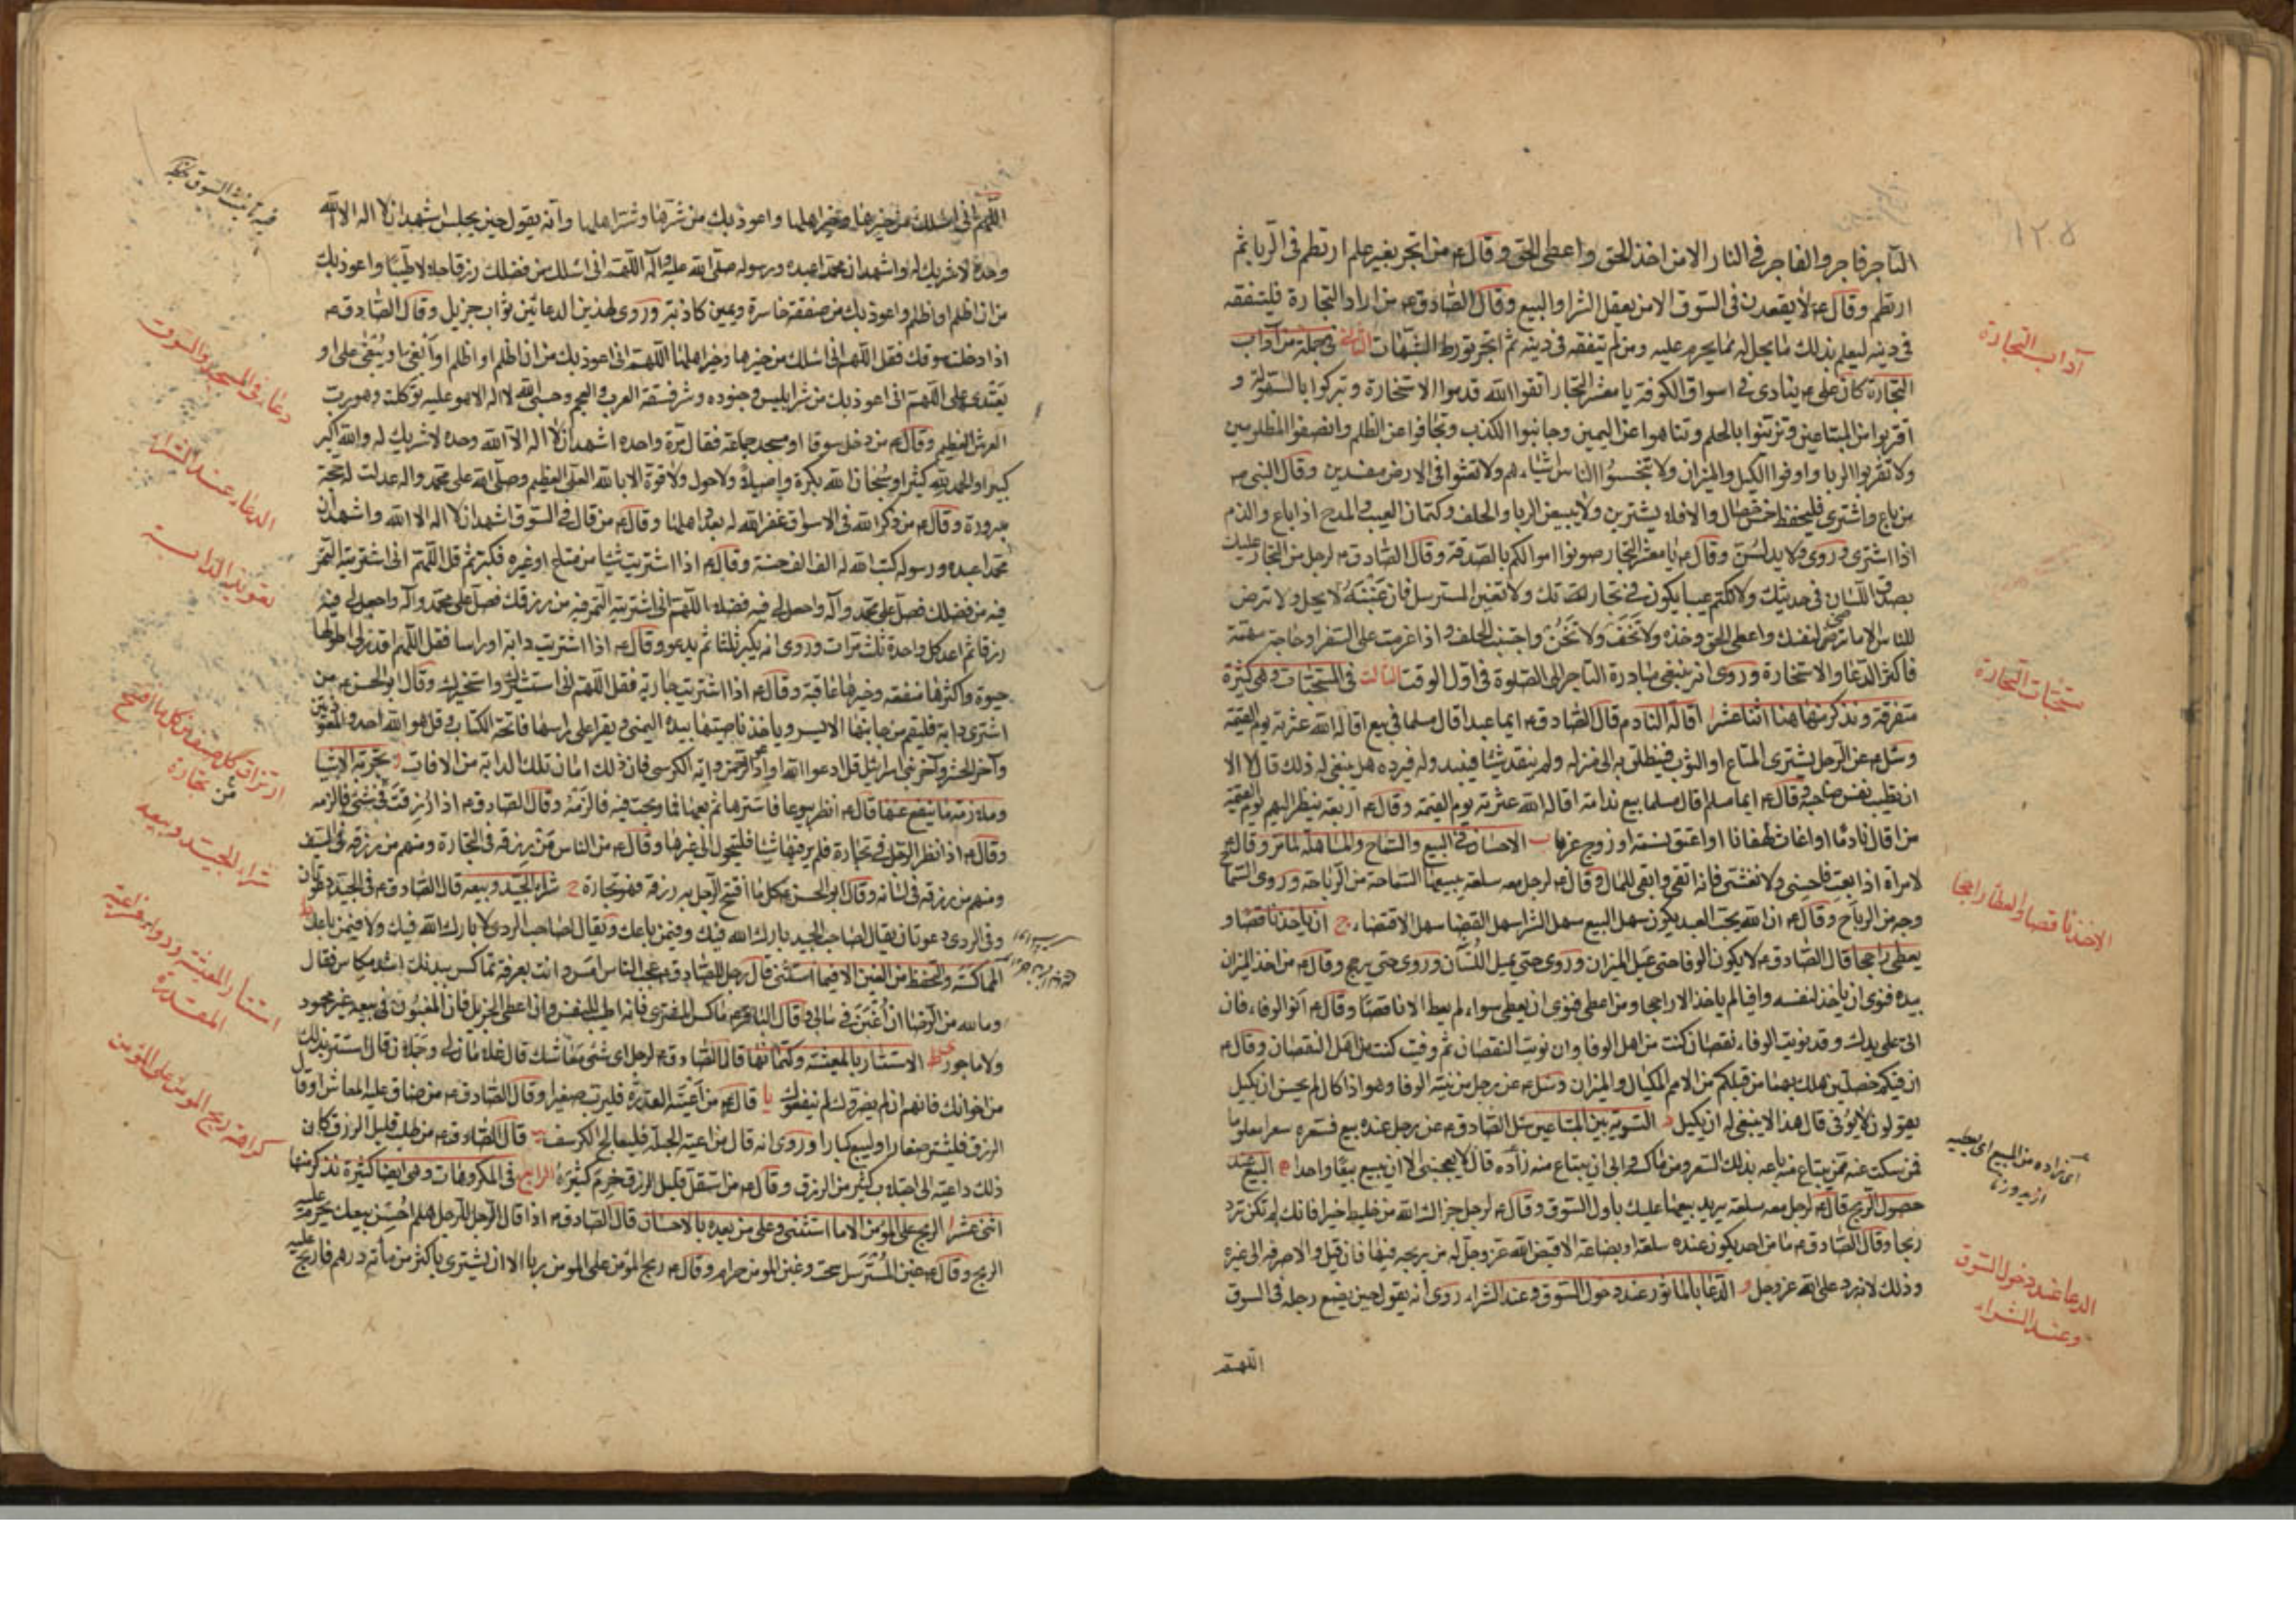 التاجر فاجر والفاجر في النار الا من اخذ الحق واعطى الحق وقال ع من اتجر بغير علم ارتطم في الربا ثم
ارتطم وقال ع لا يقعدن في السوق الا من يعقل الشرا والبيع وقال الصادق ع من اراد التجارة فليتفقه
في دينه ليعلم بذلك ما يحل له مما يحرم عليه ومن لم يتفقه في دينه ثم اتجر تورط الشبهات الثاني في جملة من آداب
التجارة كان علي ع ينادي في اسواق الكوفة يا معشر التجار اتقوا الله قدموا الاستخارة وتبركوا بالسهولة و
اقتربوا من المبتاعين وتزينوا بالحلم وتناهوا عن اليمين وجانبوا الكذب وتجافوا عن الظلم وانصفوا المظلومين
ولا تقربوا الربا واوفوا الكيل والميزان ولا تبخسوا الناس اشياءهم ولا تعثوا في الارض مفسدين وقال النبي ص
من باع واشترى فليحفظ خمس خصال والا فلا يشترين ولا يبيعن الربا والحلف وكتمان العيب والمدح اذا باع والذم
اذا اشترى وروي ولا يدلسن وقال ع يا معشر التجار صونوا اموالكم بالصدقة وقال الصادق ع لرجل من التجار عليك
بصدق اللسان في حديثك ولا تكتم عيبا يكون في تجارتك ولا تغبن المسترسل فان غبنه لا يحل ولا ترض
للناس الا ما ترضى لنفسك واعط الحق وخذه ولا تخف ولا تخن واجتنب الحلف واذا عزمت على السفر او حاجة مهمة
فاكثر الدعا والاستخارة وروي انه ينبغي مبادرة التاجر الى الصلوة في اول الوقت الثالث في المستحبات وهي كثيرة
متفرقة ونذكر منها هنا اثنا عشر ا اقالة النادم قال الصادق ع ايما عبد اقال مسلما في بيع اقاله الله عثرته يوم القيمة
وسئل ع عن الرجل يشتري المتاع او الثوب فينطلق به الى منزله ولم ينقد شيئا فيبدو له فيرده هل ينبغي له ذلك قال لا الا
ان تطيب نفس صاحبه وقال ع ايما مسلم اقال مسلما بيع ندامة اقاله الله عثرته يوم القيمة وقال ع اربعة ينظر الله اليهم يوم القيمة
من اقال نادما او اغاث لهفانا او اعتق نسمة او زوج عزبا ب الاحسان في البيع والسماح والمساهلة لما مر وقال ع
لامراة اذا بعت فاحسني ولا تغشي فانه اتقى وابقى للمال وقال ع لرجل معه سلعة يبيعها السماحة من الرباحة وروي السماح
وجه من الرباح وقال ع ان الله يحب العبد يكون سهل البيع سهل الشرا سهل القضا سهل الاقتضاء ج ان ياخذ ناقصا و
يعطي راجحا قال الصادق ع لا يكون الوفا حتى يميل الميزان وروي حتى يميل اللسان وروي حتى يرجح وقال ع من اخذ الميزان
بيده فنوى ان ياخذ لنفسه وافيا لم ياخذ الا راجحا ومن اعطى فنوى ان يعطي سواء لم يعط الا ناقصا وقال ع انو الوفاء فان
اتى على يدك وقد نويت الوفاء نقصان كنت من اهل الوفا وان نويت النقصان ثم وفيت كنت من اهل النقصان وقال ع
ان فيكم خصلتين هلك بهما من قبلكم من الامم المكيال والميزان وسئل ع عن رجل من نيته الوفا وهو اذا كال لم يحسن ان يكيل
يقولون لا يوفي قال هذا لا ينبغي له ان يكيل د التسوية بين المتباعين سئل الصادق ع عن رجل عنده بيع فسعره سعرا معلوما
فمن سكت عنه ممن يبتاع منه باعه بذلك السعر ومن ماكسه وابى ان يبتاع منه زاده قال لا يعجبني الا ان يبيع بيعا واحدا ه البيع عند
حصول الربح قال ع لرجل معه سلعة يريد بيعها عليك باول السوق وقال ع لرجل جزاك الله من خليط خيرا فانك لم تكن ترد
ربحا وقال الصادق ع ما من احد يكون عنده سلعة او بضاعة الا قيض الله عز وجل له من يربحه فيها فان قبل والا صرفه الى غيره
وذلك لانه رد على الله عز وجل و الدعا بالماثور عند دخول السوق وعند الشراء روي انه يقول حين يضع رجله في السوق
اللهم
آداب التجارة
مستحبات التجارة
الاخذ ناقصا والعطا راجحا
اى زاده من البيع اى يطلبه
الدعا عند دخول السوق
وعند الشراء
اللهم اني اسئلك من خيرها وخير اهلها واعوذ بك من شرها وشر اهلها وانه يقول حين يجلس اشهد ان لا اله الا الله
وحده لا شريك له واشهد ان محمدا عبده ورسوله صلى الله عليه وآله اللهم اني اسئلك من فضلك رزقا حلالا طيبا واعوذ بك
من ان اظلم او اظلم واعوذ بك من صفقة خاسرة ويمين كاذبة وروي لهذين الدعائين ثواب جزيل وقال الصادق ع
اذا دخلت سوقك فقل اللهم اني اسئلك من خيرها وخير اهلها اللهم اني اعوذ بك من ان اظلم او اظلم او ابغي او يبغى علي او
يعتدى علي اللهم اني اعوذ بك من شر ابليس وجنوده وشر فسقة العرب والعجم وحسبي الله لا اله الا هو عليه توكلت وهو رب
العرش العظيم وقال ع من دخل سوقا او مسجد جماعة فقال مرة واحدة اشهد ان لا اله الا الله وحده لا شريك له والله اكبر
كبيرا والحمد لله كثيرا وسبحان الله بكرة واصيلا ولا حول ولا قوة الا بالله العلي العظيم وصلى الله على محمد واله عدلت له حجة
مبرورة وقال ع من ذكر الله في الاسواق غفر الله له بعدد اهلها وقال ع من قال في السوق اشهد ان لا اله الا الله واشهد ان
محمدا عبده ورسوله كتب الله له الف الف حسنة وقال ع اذا اشتريت شيئا من متاع او غيره فكبر ثم قل اللهم اني اشتريته التمس
فيه من فضلك فصل على محمد وآله واجعل لي فيه فضلا اللهم اني اشتريته التمس فيه من رزقك فصل على محمد وآله واجعل لي فيه
رزقا ثم اعد كل واحدة ثلث مرات وروي انه يكبر ثلثا ثم يدعو وقال ع اذا اشتريت دابة او راسا فقل اللهم اقدر لي اطولها
حيوة واكثرها منفعة وخيرها عاقبة وقال ع اذا اشتريت جارية فقل اللهم اني استشيرك واستخيرك وقال ابو الحسن ع من
اشترى دابة فليقم من جانبها الايسر وياخذ ناصيتها بيده اليمنى ويقرا على راسها فاتحة الكتاب وقل هو الله احد والمعوذتين
وآخر الحشر وآخر بني اسرائيل قل ادعوا الله او ادعوا الرحمن وآية الكرسي فان ذلك امان تلك الدابة من الافات ز تجربة الاشيا
وملازمة ما ينتفع عنها قال ع انظر بيوعا فاشترها ثم بعها فما ربحت فيه فالزمه وقال الصادق ع اذا رزقت في شيء فالزمه
وقال ع اذا نظر الرجل في تجارة فلم ير فيها شيئا فليتحول الى غيرها وقال ع من الناس من رزقه في التجارة ومنهم من رزقه في السيف
ومنهم من رزقه في لسانه وقال ابو الحسن ع كل ما افتتح الرجل به رزقه فهو تجارة ح شراء الجيد وبيعه قال الصادق ع في الجيد دعوتان
وفي الردي دعوتان يقال لصاحب الجيد بارك الله فيك وفيمن باعك ويقال لصاحب الردي لا بارك الله فيك ولا فيمن باعك
المماكسة والتحفظ من الغبن الا فيما استثني قال رجل للصادق ع عجب الناس امس وانت بعرفة تماكس ببدنك اشد مكاس فقال
وما لله من الرضا ان اغبن في مالي وقال الباقر ع ماكس المشتري فانه اطيب للنفس وان اعطى الجزيل فان المغبون في بيعه غير محمود
ولا ماجور الاستتار بالمعيشة وكتمانها قال الصادق ع لرجل اي شيء معاشك قال غلامان لي وجملان قال استتر بذلك
من اخوانك فانهم ان لم يضروك لم ينفعوك يا قال ع من اعيته القدرة فليرب صغيرا وقال الصادق ع من ضاق عليه المعاش او قال
الرزق فليشتر صغارا وليبع كبارا وروي انه قال من اعيته الحيلة فليعالج الكرسف يب قال الصادق ع من طلب قليل الرزق كان
ذلك داعيته الى اجتلاب كثير من الرزق وقال ع من استقل قليل الرزق حرم كثيره الرابع في المكروهات وهي ايضا كثيرة نذكر منها
اثنى عشر ا الربح على المؤمن الا ما استثني وعلى من يعده بالاحسان قال الصادق ع اذا قال الرجل للرجل هلم احسن بيعك يحرم عليه
الربح وقال ع غبن المسترسل سحت وغبن المؤمن حرام وقال ع ربح المؤمن على المؤمن ربا الا ان يشتري باكثر من مائة درهم فاربح عليه
دعاء في المسجد والسوق
الدعاء عند الشراء
تعويذ الدابة
ارتزاق كل صنف من كل ما افتتح
من تجارة
شراء الجيد وبيعه
استتار المعيشة
كراهة ربح المؤمن على المؤمن